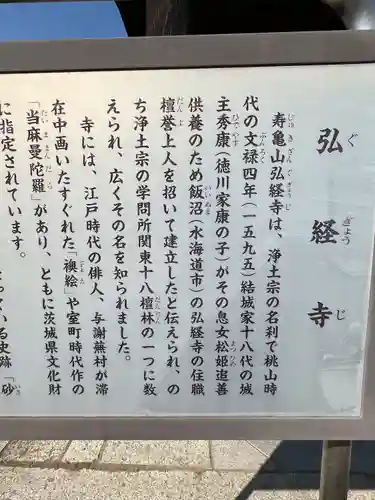 弘経寺
ぐぎょうじ
寿亀山弘経寺は、浄土宗の名刹で桃山時
代の文禄四年(一五九五)結城家十八代の城
主秀康(徳川家康の子)がその息女松姫追善
供養のため飯沼(水海道市)の弘経寺の住職
檀誉上人を招いて建立したと伝えられ、の
ち浄土宗の学問所関東十八檀林の一つに数
えられ、広くその名を知られました。
寺には、江戸時代の俳人、与謝蕪村が滞
在中画いたすぐれた「襖絵」や室町時代作の
「当麻曼陀羅」があり、ともに茨城県文化財
に指定されています。
いる史跡「砂